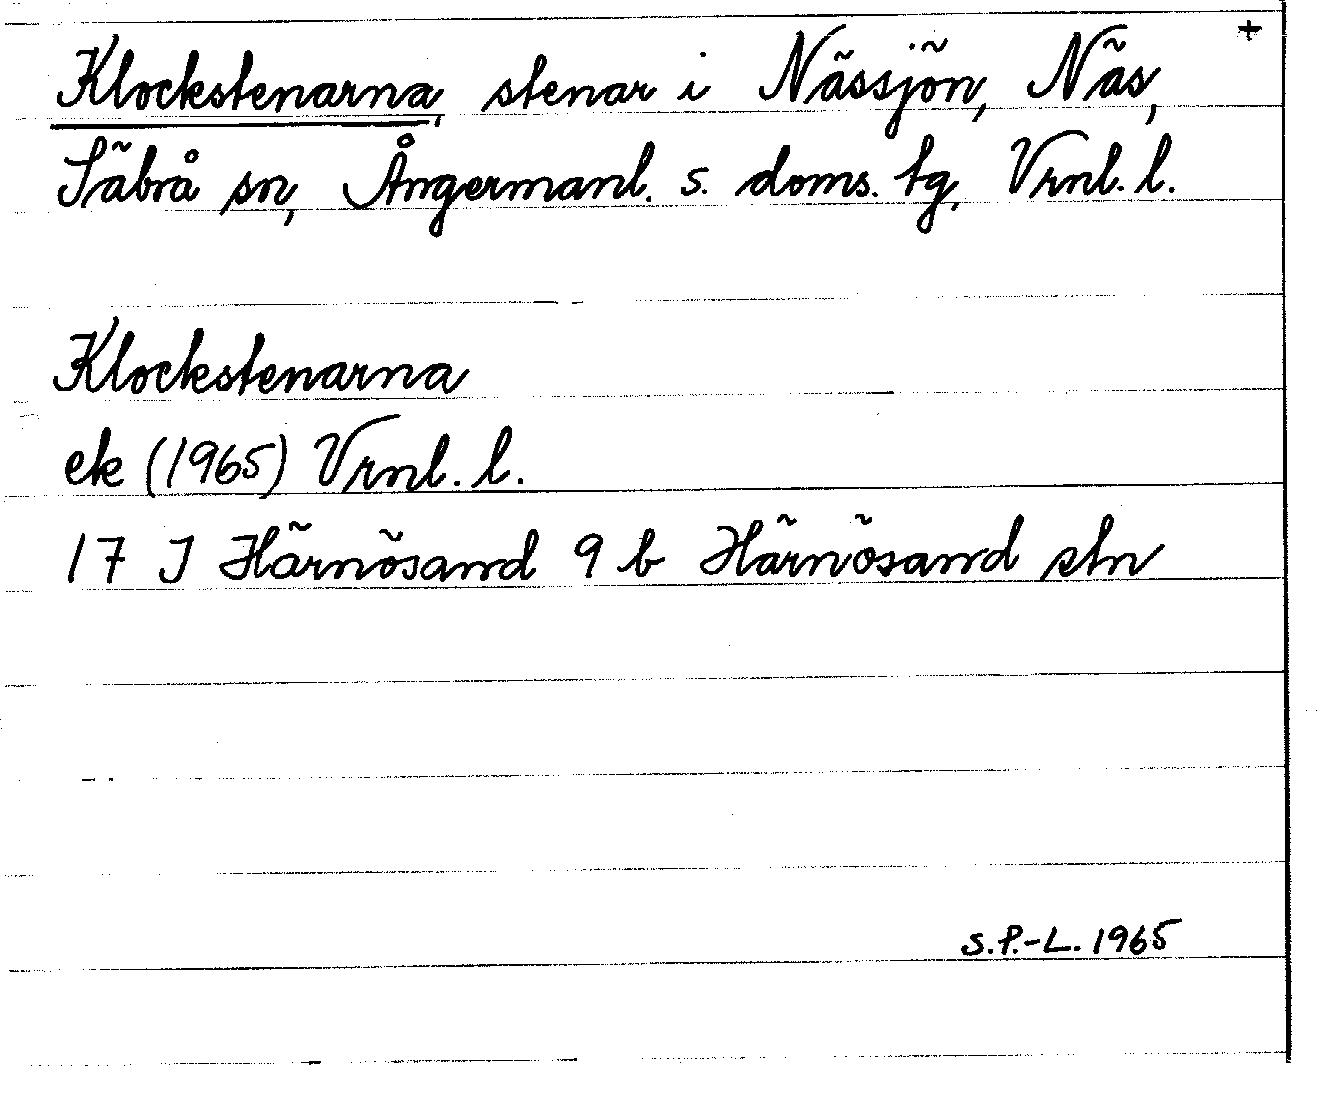 +
Klockstenarna, stenar i Nässjön, Näs,
Säbrå sn, Ångermanl. s. doms. tg, Vrnl. l.
Klockstenarna
ek (1965) Vrnl. l.
17 J Härnösand 9 b Härnösand stn
S.P.-L. 1965